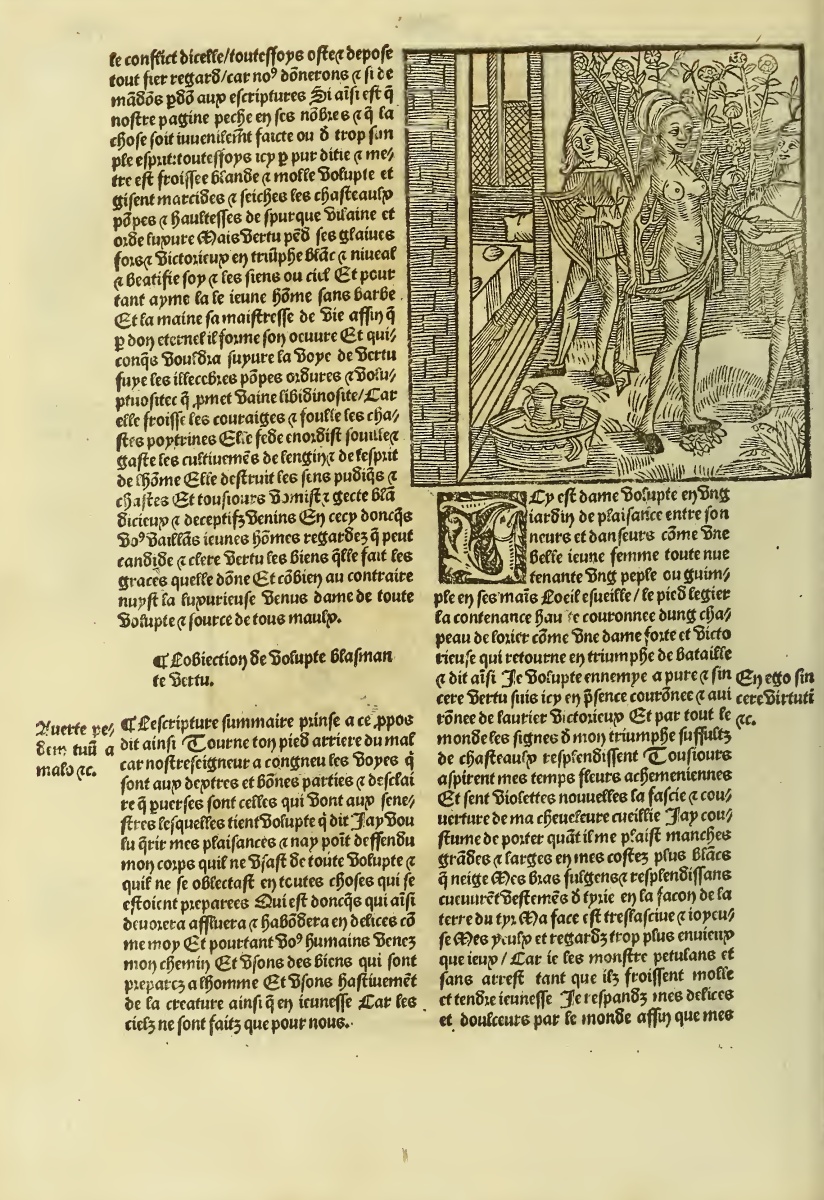 le conflict dicelle/toutesfoys ostez depose
tout fier regard/car noꝰ dōnerons ⁊ si de
mādōs pdō aux escriptures Si aīsi est q̄
nostre pagine peche en ses nōbres ⁊ q̄ la
chose soit iuuenilemēt faicte ou d trop sim
ple esprit:toutesfoys icy p pur ditie ⁊ me/
tre est froissee blande ⁊ molle Volupte et
gisent marcides ⁊ seiches les chasteaulx
pōpes ⁊ haultesses de spurque vilaine et
orde luxure Mais vertu pēd ses glaiues
fors⁊ victorieux en triūphe blāc ⁊ niueal
⁊ beatifie soy ⁊ les siens ou ciel Et pour
tant ayme la le ieune hōme sans barbe
Et la maine sa maistresse de vie affin q̄
p don eternel il forme son oeuure Et qui/
conq̄s vouldra suyure la voye de vertu
fuye les illecebres pōpes ordures ⁊ volu/
ptuositez q̄ pmet vaine libidinosite/Car
elle froisse les couraiges ⁊ foulle les cha/
stes poytrines Elle fede enordist souille⁊
gaste les cultiuemēs de lengin⁊ de lesprit
de lhōme Elle destruit les sens pudiq̄s ⁊
chastes Et tousiours vomist ⁊ gecte blā
dicieux ⁊ deceptifz venins En cecy doncq̄s
voꝰ vaillās ieunes hōmes regardez q̄ peut
candide ⁊ clere vertu les biens q̄lle fait les
graces quelle dōne Et cōbien au contraire
nuyst la luxurieuse Venus dame de toute
volupte ⁊ source de tous maulx.
¶ Lobiection de Volupte blasman
te vertu.
Auerte pe/
dem tuū a
malo ⁊c.
¶ Lescripture summaire prinse a ce ppos
dit ainsi Tourne ton pied arriere du mal
car nostreseigneur a congneu les voyes q̄
sont aux dextres et bōnes parties ⁊ desclai
re q̄ puerses sont celles qui vont aux sene/
stres lesquelles tient volupte q̄ dit Jay vou
lu q̄rir mes plaisances ⁊ nay poīt deffendu
mon corps quil ne vsast de toute volupte ⁊
quil ne se oblectast en toutes choses qui se
estoient preparees Qui est doncq̄s qui aīsi
deuorera affluera ⁊ habōdera en delices cō
me moy Et pourtant voꝰ humains venez
mon chemin Et vsons des biens qui sont
preparez a lhomme Et vsons hastiuemēt
de la creature ainsi q̄ en ieunesse Car les
cielz ne sont faitz que pour nous.
ICy est dame volupte en vng
iardin de plaisance entre son
neurs et danseurs cōme vne
belle ieune femme toute nue
tenante vng peple ou guim/
ple en ses maīs Loeil esueille/le pied legier
la contenance haulte couronnee dung cha/
peau de lorier cōme vne dame forte et victo
rieuse qui retourne en triumphe de bataille
⁊ dit aīsi Je Volupte ennemye a pure ⁊ sin
cere vertu suis icy en p̄sence courōnee ⁊ aui
rōnee de laurier victorieux Et par tout le
monde les signes d mon triumphe suffultz
de chasteaulx resplendissent Tousiours
aspirent mes temps fleurs achemeniennes
Et sent violettes nouuelles la fascie ⁊ cou/
uerture de ma cheueleure cueillie Jay cou/
stume de porter quāt il me plaist manches
grādes ⁊ larges en mes costez plus blācs
q̄ neige Mes bras fulgens⁊ resplendissans
cueuurēt vestemēs d tyrie en la facon de la
terre du tyr Ma face est treslasciue ⁊ ioyeu/
se Mes yeulx et regardz trop plus enuieux
que ieux/Car ie les monstre petulans et
sans arrest tant que ilz froissent molle
et tendre ieunesse Je respandz mes delices
et doulceurs par le monde affin que mes
En ego sin
cere virtuti
⁊c.